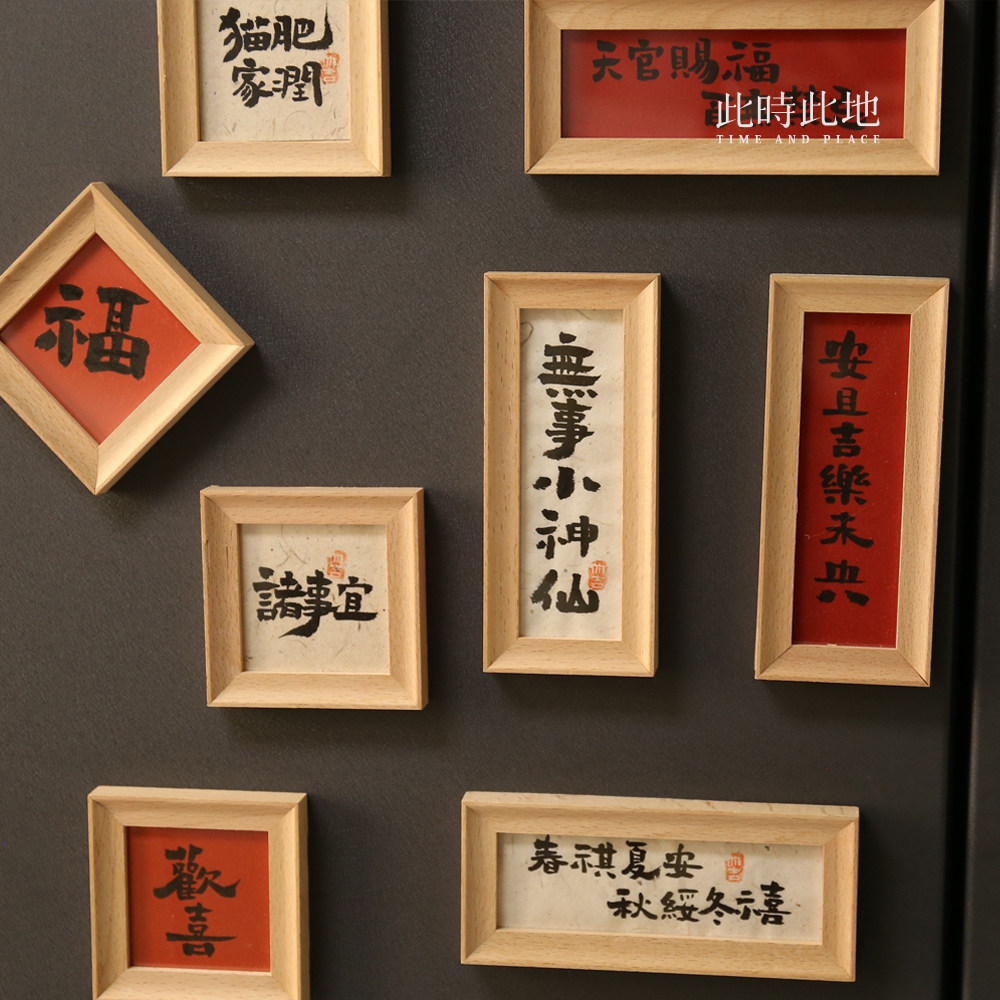 猫肥
家潤
天官賜福
此時此地
TIME AND PLACE
福
無事小神仙
安且吉樂未央
諸事宜
歡喜
春祺夏安
秋綏冬禧